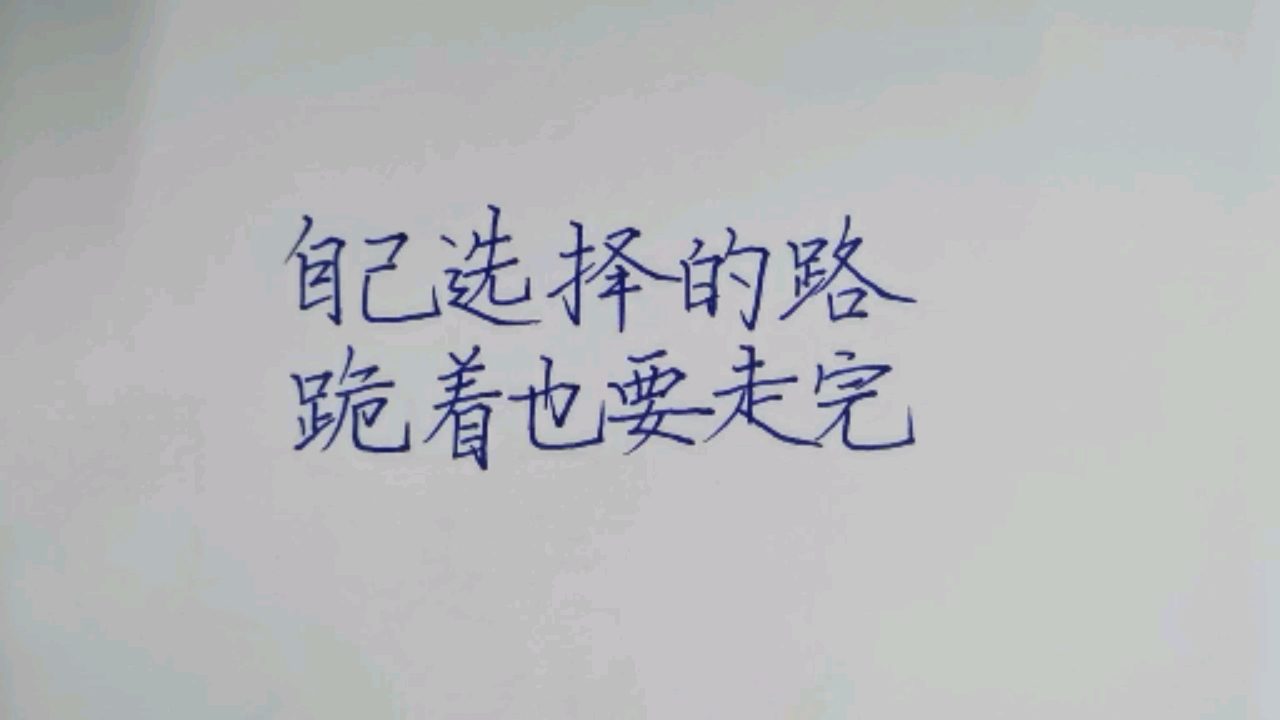 自己选择的路
跪着也要走完